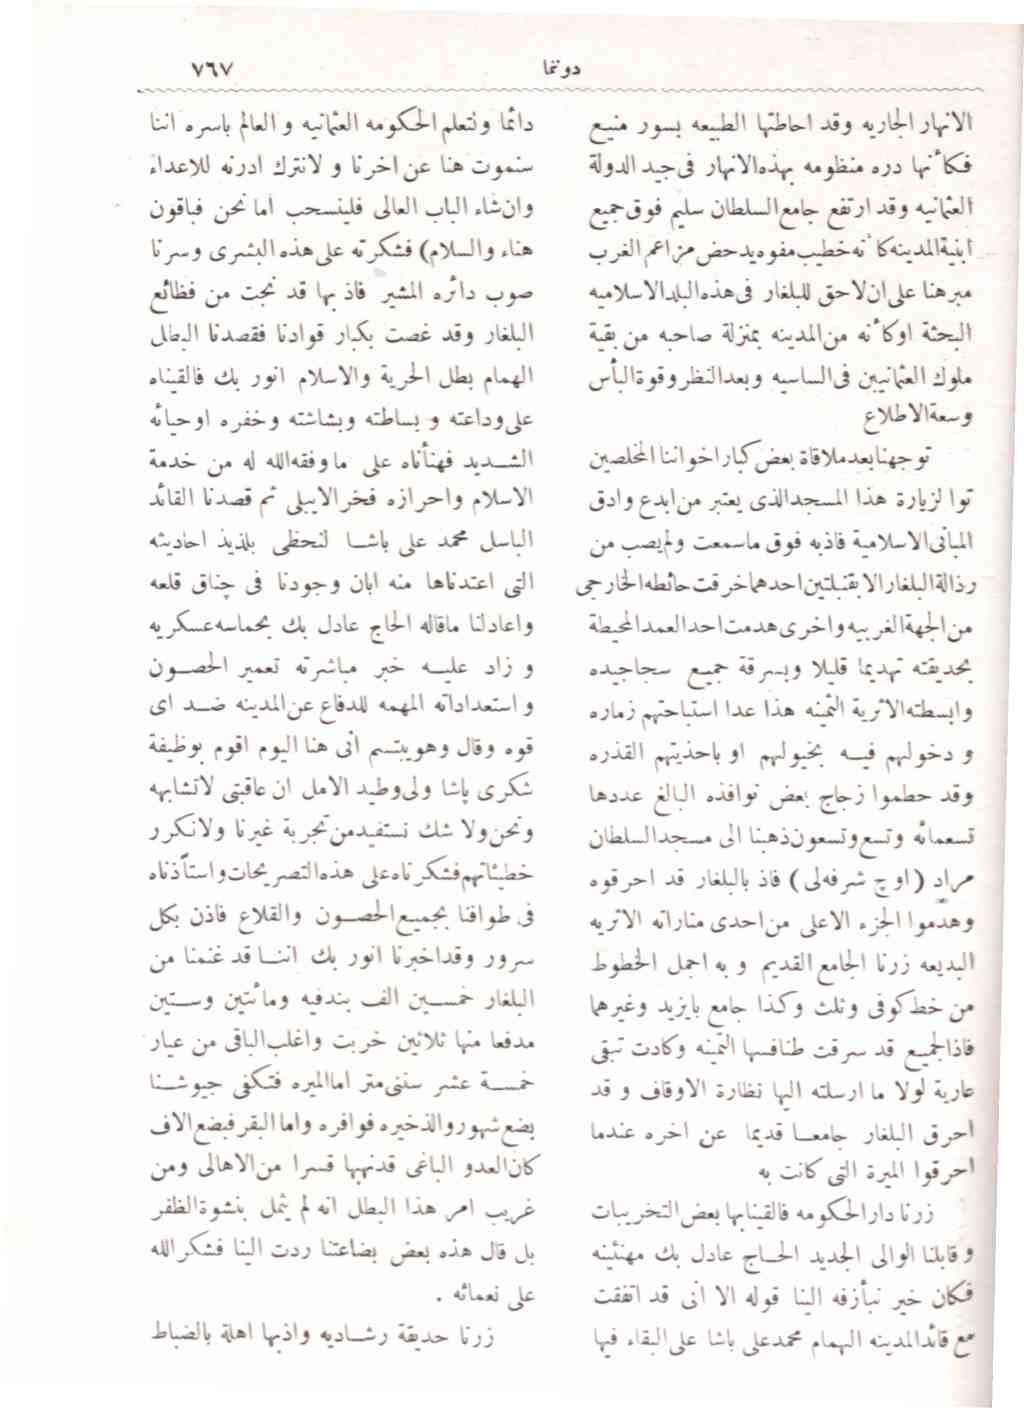 دوننما
٧٦٧
الانهار الجاريه وقد احاطتها الطبيعه بسور منيع
فكأنها دره منظومه بهذه الانهار فى جيد الدولة
العثمانيه وقد ارتفع جامع السلطان سليم فوق جميع
ابنية المدينه كأنه خطيب مفوه يدحض مزاعم الغرب
مبرهنا على ان لاحق للبلغار فى هذه البلد الاسلاميه
البحتة اوكأنه من المدينه بمنزلة صاحبه من بقية
ملوك العثمانيين فى الساسيه وبعد النظر وقوة البأس
وسعة الاطلاع
توجهنا بعد ملاقاة بعض كبار اخواننا المخلصين
توا لزيارة هذا المسجد الذى يعتبر من ابدع وادق
المبانى الاسلامية فاذبه فوق ماسمعت ولم يصب من
رذالة البلغار الا بقنبلتين احدهما خرقت حائطه الخارجى
من الجهة الغربيه واخرى هدمت احد العمد المحيطة
بحديقته تهديما قليلا وبسرقة جميع سجاجيده
وابسطته الاثرية الثمينه هذا عدا استباحتهم زماره
و دخولهم فيه بخيولهم او باحذيتهم القذره
وقد حطموا زجاج بعض نوافذه البالغ عددها
تسعمائه وتسع وتسعون ذهبنا الى مسجد السلطان
مراد (اوچ شرفه لى) فاذ بالبلغار قد احرقوه
وهدموا الجزء الاعلى من احدى مناراته الاثريه
البديعه زرنا الجامع القديم و به اجمل الخطوط
من خط كوفى وثلث وكذا جامع بايزيد وغيرهما
فاذا الجميع قد سرقت طنافسها الثمينه وكادت تبقى
عارية لولا ما ارسلته اليها نظارة الاوقاف و قد
احرق البلغار جامعا قديما عن اخره عندما
احرقوا الميرة التى كانت به
زرنا دار الحكومه فالقينا بها بعض التخريبات
وقابلنا الوالى الجديد الحاج عادل بك مهنئينه
فكان خير نبأ زفه الينا قوله الا انى قد اتفقت
مع قائد المدينه الهمام محمد على باشا على البقاء فيها
دائما ولتعلم الحكومه العثمانيه و العالم باسره اننا
سنموت هنا عن اخرنا و لانترك ادرنه للاعداء
وان شاء الباب العالى فلينسحب اما نحن فباقون
هناء والسلام) فشكرته على هذه البشرى وسرنا
صوب دائره المشير فاذ بها قد نجت من فظائع
البلغار وقد غصت بكبار قوادنا فقصدنا البطل
الهمام بطل الحرية والاسلام انور بك فالقيناه
على وداعته و بساطته وبشاشته وخفره اوحيائه
الشديد فهنأناه على ماوفقه الله له من خدمة
الاسلام واحرازه فخر الايبلى ثم قصدنا القائد
الباسل محمد على باشا لنحظى بلذيذ احاديثه
التى اعتدناها منه ابان وجودنا فى چناق قلعه
واعادلنا ماقاله الحاج عادل بك بحماسه عسكريه
و زاد عليه خبر مباشرته تعمير الحصون
و استعداداته المهمه للدفاع عن المدينه ضد اى
قوه وقال وهو يبتسم انى هنا اليوم اقوم بوظيفة
شكرى پاشا ولى وطيد الامل ان عاقبتى لاتشابهه
ونحن ولا شك نستفيد من تجربة غيرنا ولا نكرر
خطيئاتهم فشكرناه على هذه التصريحات واستأذناه
فى طوافنا بجميع الحصون والقلاع فاذن بكل
سرور وقد اخبرنا انور بك اننا قد غنمنا من
البلغار خمسين الف بندقيه ومائتين وستين
مدفعا منها ثلاثين خربت واغلب الباقى من عيار
خمسة عشر سنتى متر اما الميره فتكفى جيوشنا
بضع شهور والذخيره فوافره واما البقر فبضع الاف
كان العدو الباغى قد نهبها قسرا من الاهالى ومن
غريب امر هذا البطل انه لم يثمل بنشوة الظفر
بل قال هذه بعض بضاعتنا ردت الينا فشكر الله
على نعمائه .
زرنا حديقة رشاديه واذبها اهلة بالضباط